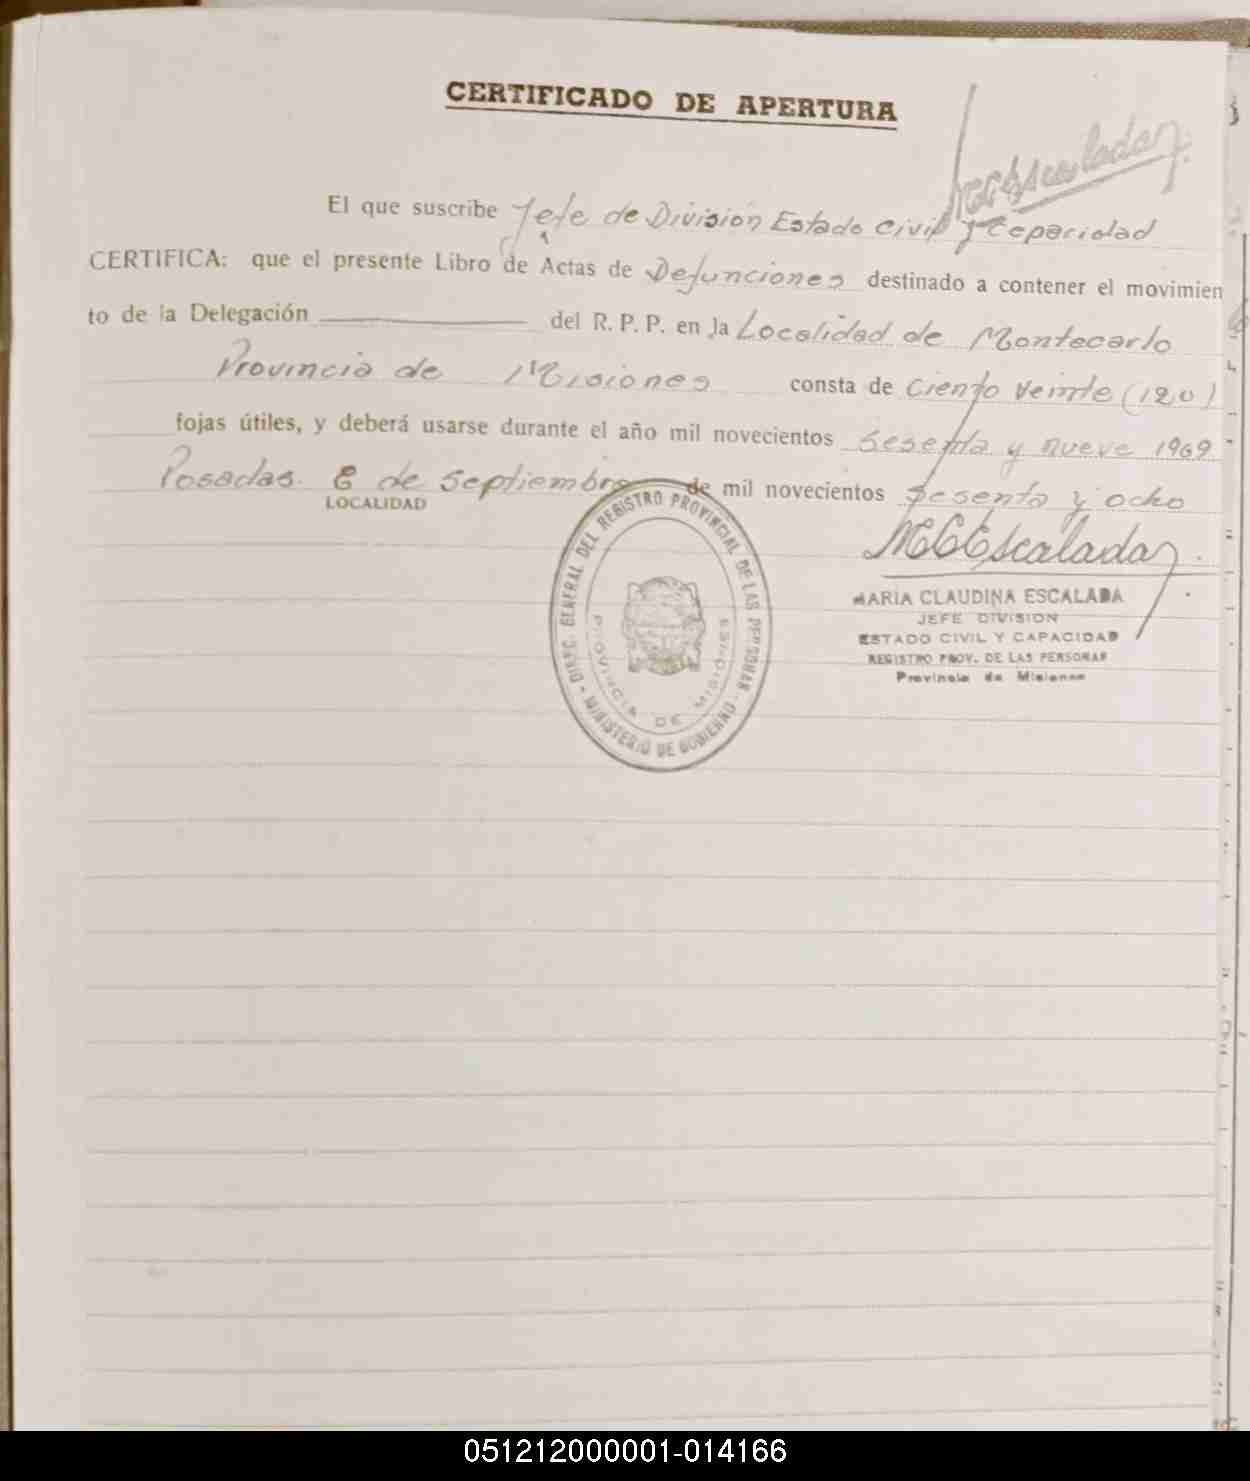 CERTIFICADO DE APERTURA
MCCEscalada
El que suscribe Jefe de División Estado Civil y Capacidad
CERTIFICA: que el presente Libro de Actas de Defunciones destinado a contener el movimien
to de la Delegación del R. P. P. en la Localidad de Montecarlo
Provincia de Misiones consta de Ciento Veinte (120)
fojas útiles, y deberá usarse durante el año mil novecientos Sesenta y nueve 1969
Posadas 6 de Septiembre de mil novecientos Sesenta y ocho
LOCALIDAD
DIREC. GENERAL DEL REGISTRO PROVINCIAL DE LAS PERSONAS
PROVINCIA DE MISIONES
- MINISTERIO DE GOBIERNO -
MCCEscalada
MARIA CLAUDINA ESCALADA
JEFE DIVISION
ESTADO CIVIL Y CAPACIDAD
REGISTRO PROV. DE LAS PERSONAS
Provincia de Misiones
051212000001-014166